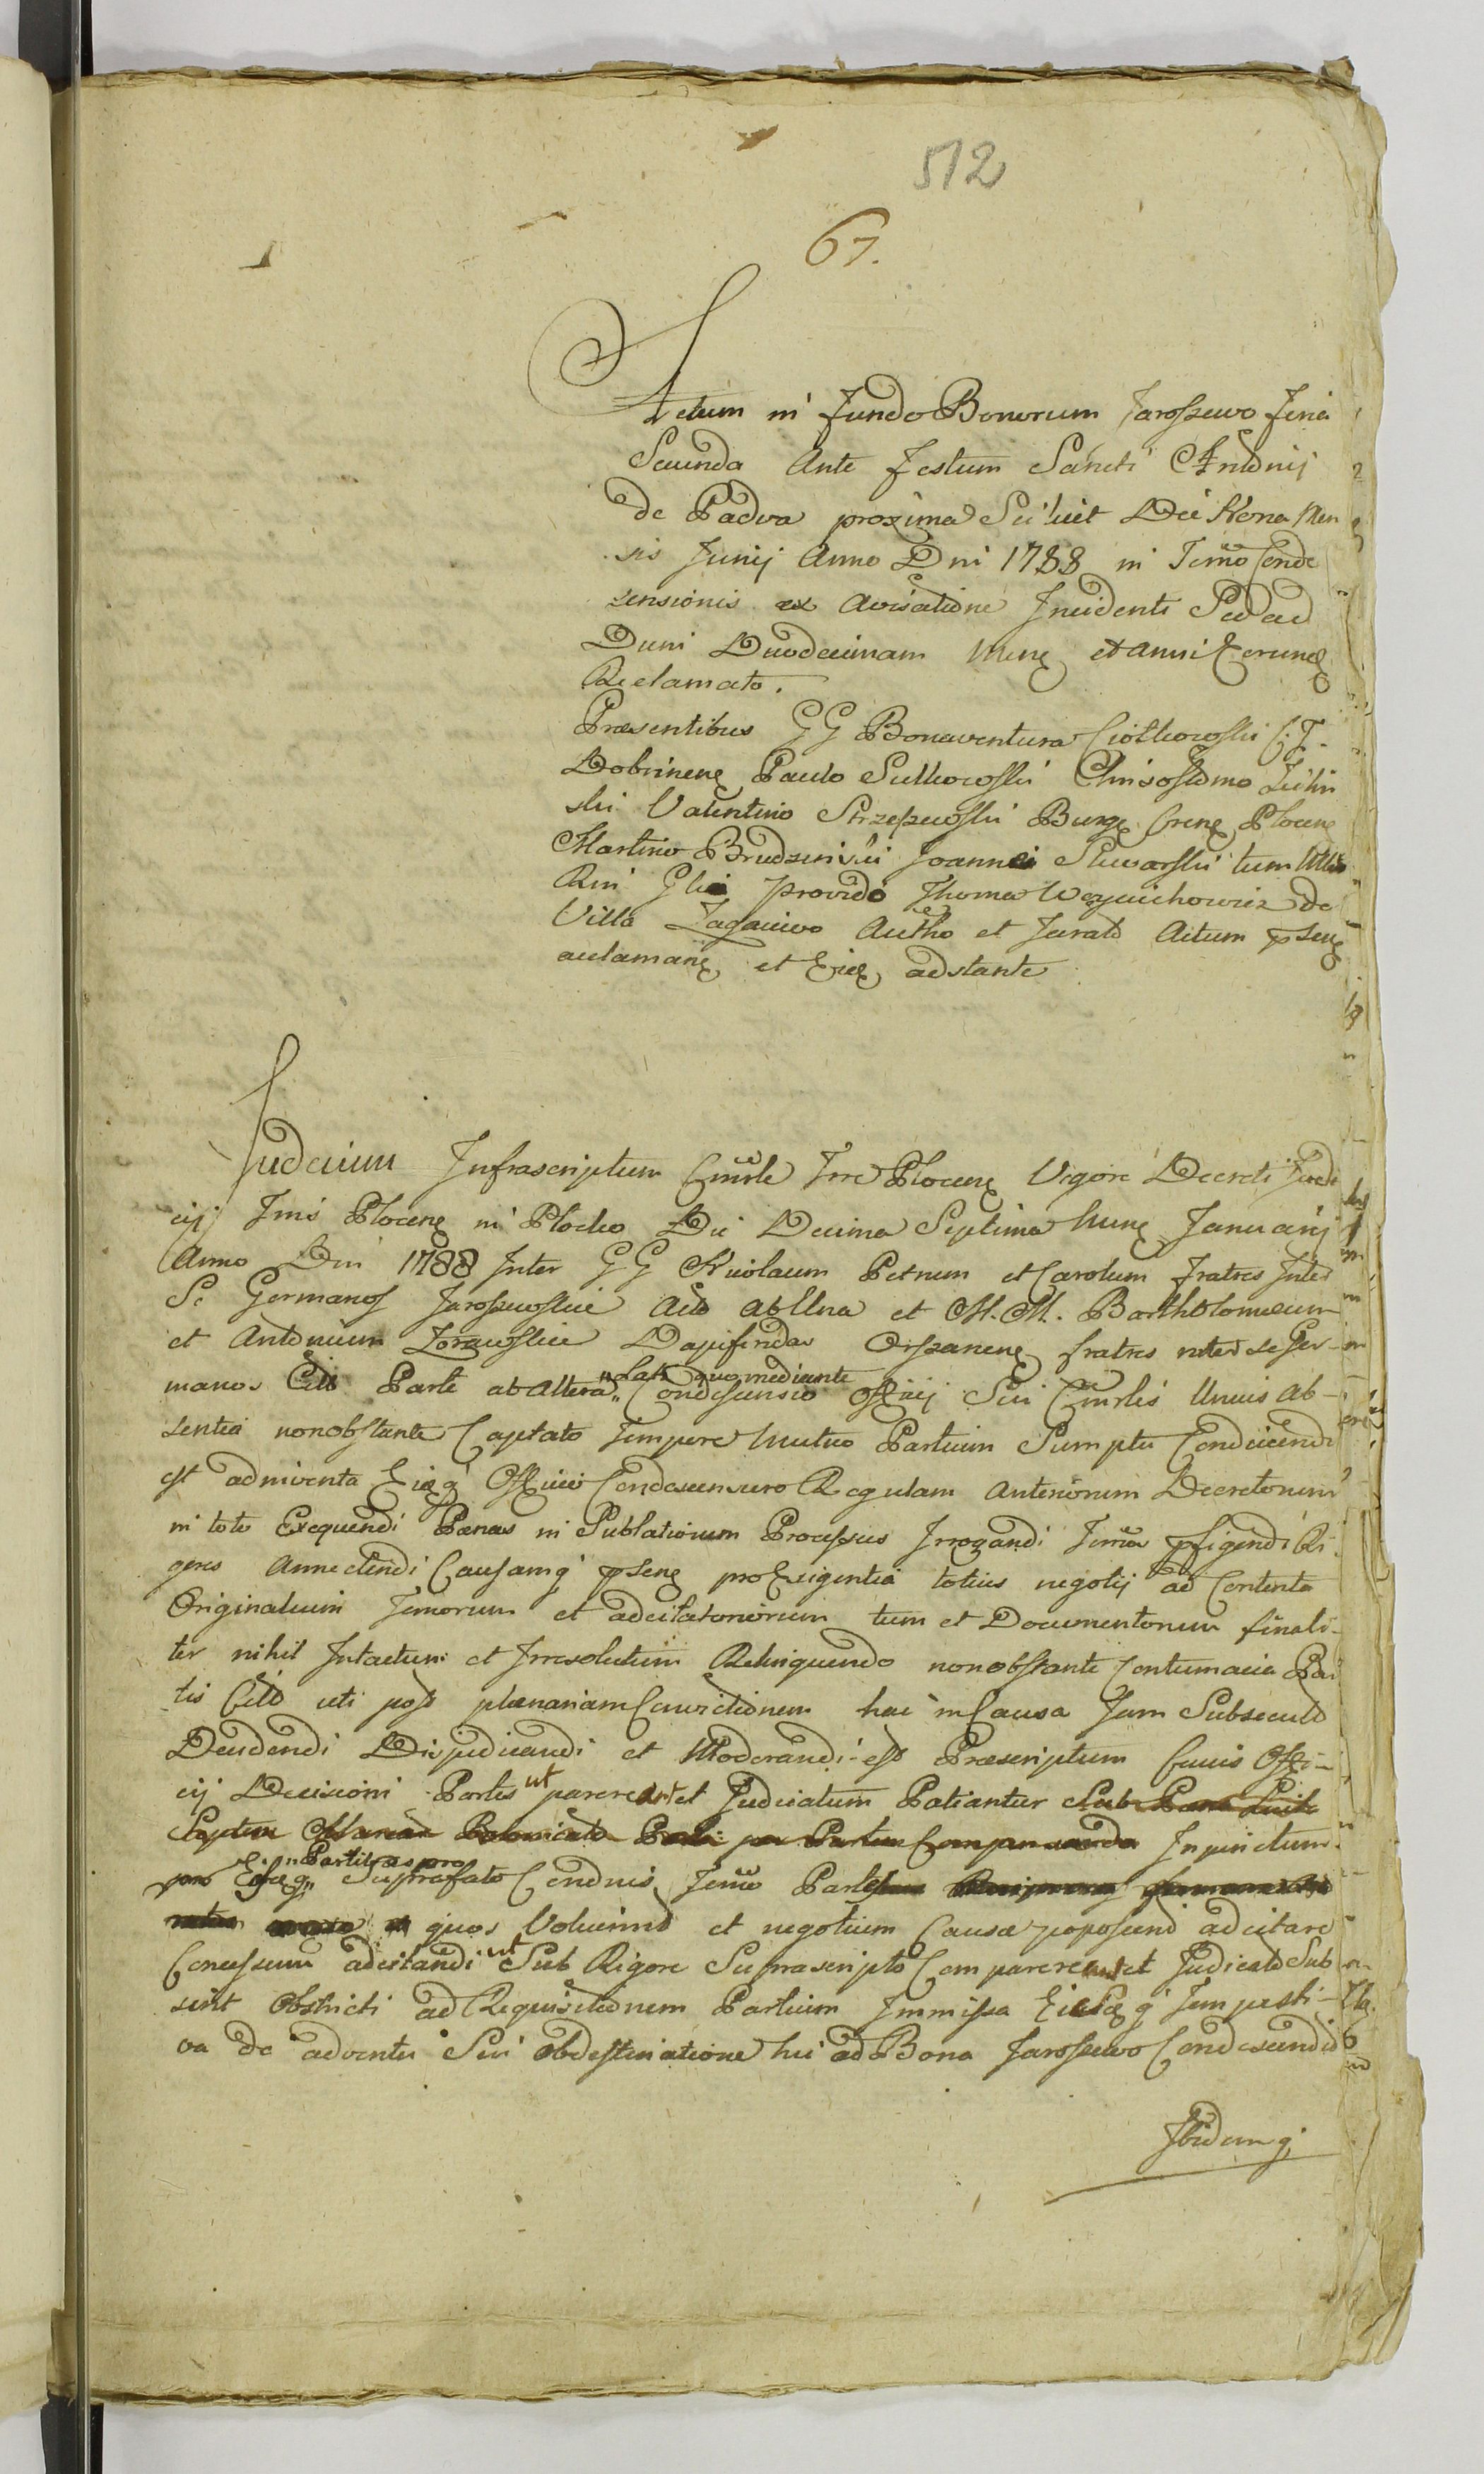 512
67.
Actum in Fundo Bonorum Jaroszewo Feria
Secunda Ante Festum Sancti Antonij
de Padva proxima Scilicet Die Nona Men
sis Junij Anno Dni 1788 in Termo Conde
scensionis ex Avisatione Incidenti Sed ad
Diem Duodecimam Mens et anni Eorund
Reclamato.
Præsentibus GG Bonaventura Ciołkowski C. T.
Dobrinens Paulo Sutkowski Chrisostomo Zieliń
ski Valentino Strzeszewski Burgs Crens Plocens
Martino Brudzinski Joannei tum Mtis
Rni Gli Provido Thoma Woyciechowicz de
Villa Zagaiewo Autho et Jurato Actum psens
acclamans et Eids adstante
Judicium Infrascriptum Cmrle Trre Plocens Vigore Decreti Judi
cij Trris Plocens in Plocko Die Decima Septima Mens Januarij
Anno Dni 1788 Inter GG Nicolaum Petrum et Carolum Fratres Inter
Se Germanos Jaroszewskie Acto ab Una et M. M. Bartholomæum
et Antonium Zorawskie Dapiferidas Orszanens fratres inter se Ger-
manos Citt Parte ab Altera "nolati quo mediante Condescensio Officij Sui Cmrlis Unius ab-
sentia nonobstante Captato Tempore Mutuo Partium Sumptu Conducendi
est adinventa Eidq Officio Condescensuro Regulam Anteriorum Decretorum
in toto Exequendi Pænas in Sublationem Processus Irrogandi Termo pfigendi Ri
gores Annectendi Causamq psens pro Exigentia totius negotij ad Contenta
Originalium Termorum et adcitatoriorum tum et Documentorum finali-
ter nihil Intactum et Irresolutum Relinquendo nonobstante Contumacia Par
tis Citto uti post plænariam Convictionem hac in Causa Jam Subsecuto
Decidendi Dijudicandi et Moderandi est Præscriptum Cuius Offi-
cij Decisioni Partes ut parereant et Judicatum Patiantur Sub Pæna
Septem Marcar Polonicalo per Partem Comparendo Injunctum
pro Ejsq "Partibus pro Suprafato Condnis Termo Partes
quos Voluerint et negotium Causæ poposcerit adcitare
Concessum adcitandi ut Sub Rigore Suprascripto Comparereant et Judicato Sub
sint Obstricti ad Requisitionem Partium Immissa Eisq Tempesti-
va de adventu Sui Obdestinatione hic ad Bona Jaroszewo Condescendit
Ibidemq